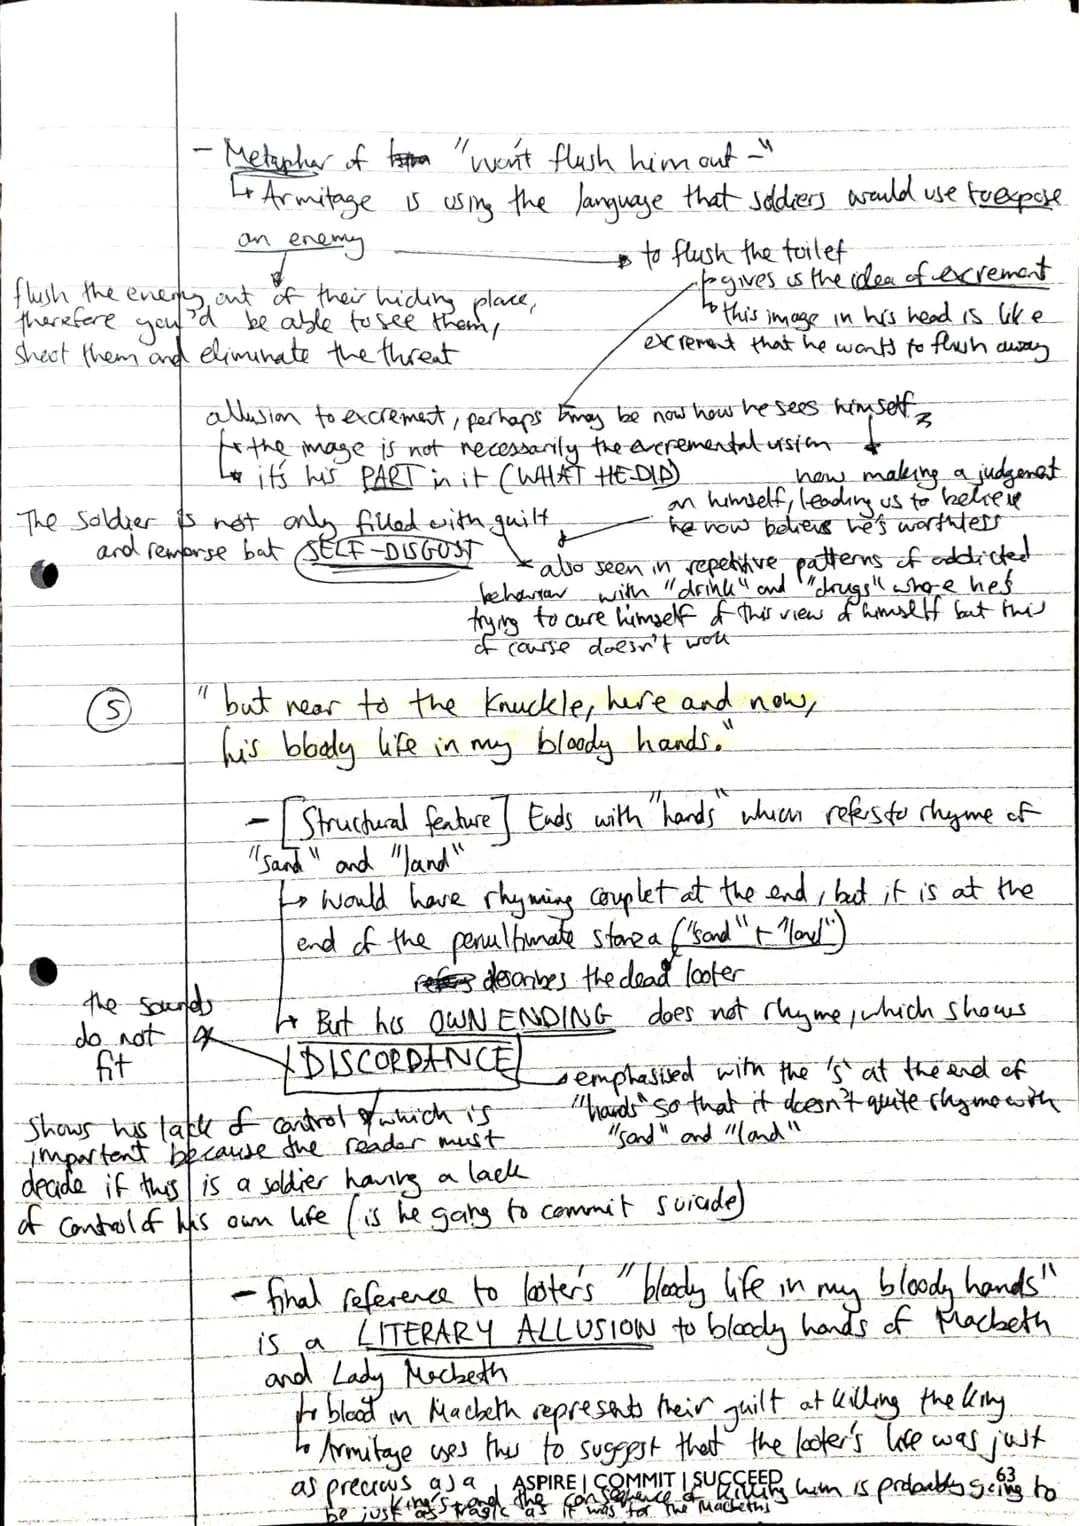 - Metaphor of "won't flush him out -"
↳ Armitage is using the language that soldiers would use to expose
an enemy
→ to flush the toilet
↳ gives us the idea of excrement
↳ this image in his head is like
excrement that he wants to flush away
flush the enemy out of their hiding place,
therefore you'd be able to see them,
shoot them and eliminate the threat
allusion to excrement, perhaps may be now how he sees himself
↳ the image is not necessarily the excremental vision
↳ it's his PART in it (WHAT HE DID)
now making a judgement
on himself, leading us to believe
he now believes he's worthless
The soldier is not only filled with guilt
and remorse but SELF-DISGUST
also seen in repetitive patterns of addicted
behaviour with "drink" and "drugs" where he's
trying to cure himself of this view of himself but this
of course doesn't work
5
"but near to the knuckle, here and now,
his bloody life in my bloody hands."
- [Structural feature] Ends with "hands" which refers to rhyme of
"sand" and "land"
↳ Would have rhyming couplet at the end, but it is at the
end of the penultimate stanza ("sand" + "land")
describes the dead looter
↳ But his OWN ENDING does not rhyme, which shows
DISCORDANCE
the sounds
do not
fit
→ emphasised with the 's' at the end of
"hands" so that it doesn't quite rhyme with
"sand" and "land"
Shows his lack of control & which is
important because the reader must
decide if this is a soldier having a lack
of control of his own life (is he going to commit suicide)
- final reference to looter's "bloody life in my bloody hands"
is a LITERARY ALLUSION to bloody hands of Macbeth
and Lady Macbeth
↳ blood in Macbeth represents their guilt at killing the king
↳ Armitage uses this to suggest that the looter's life was just
as precious as a king's and the consequence of killing him is probably going to
be just as tragic as it was for the Macbeths
ASPIRE | COMMIT | SUCCEED
63